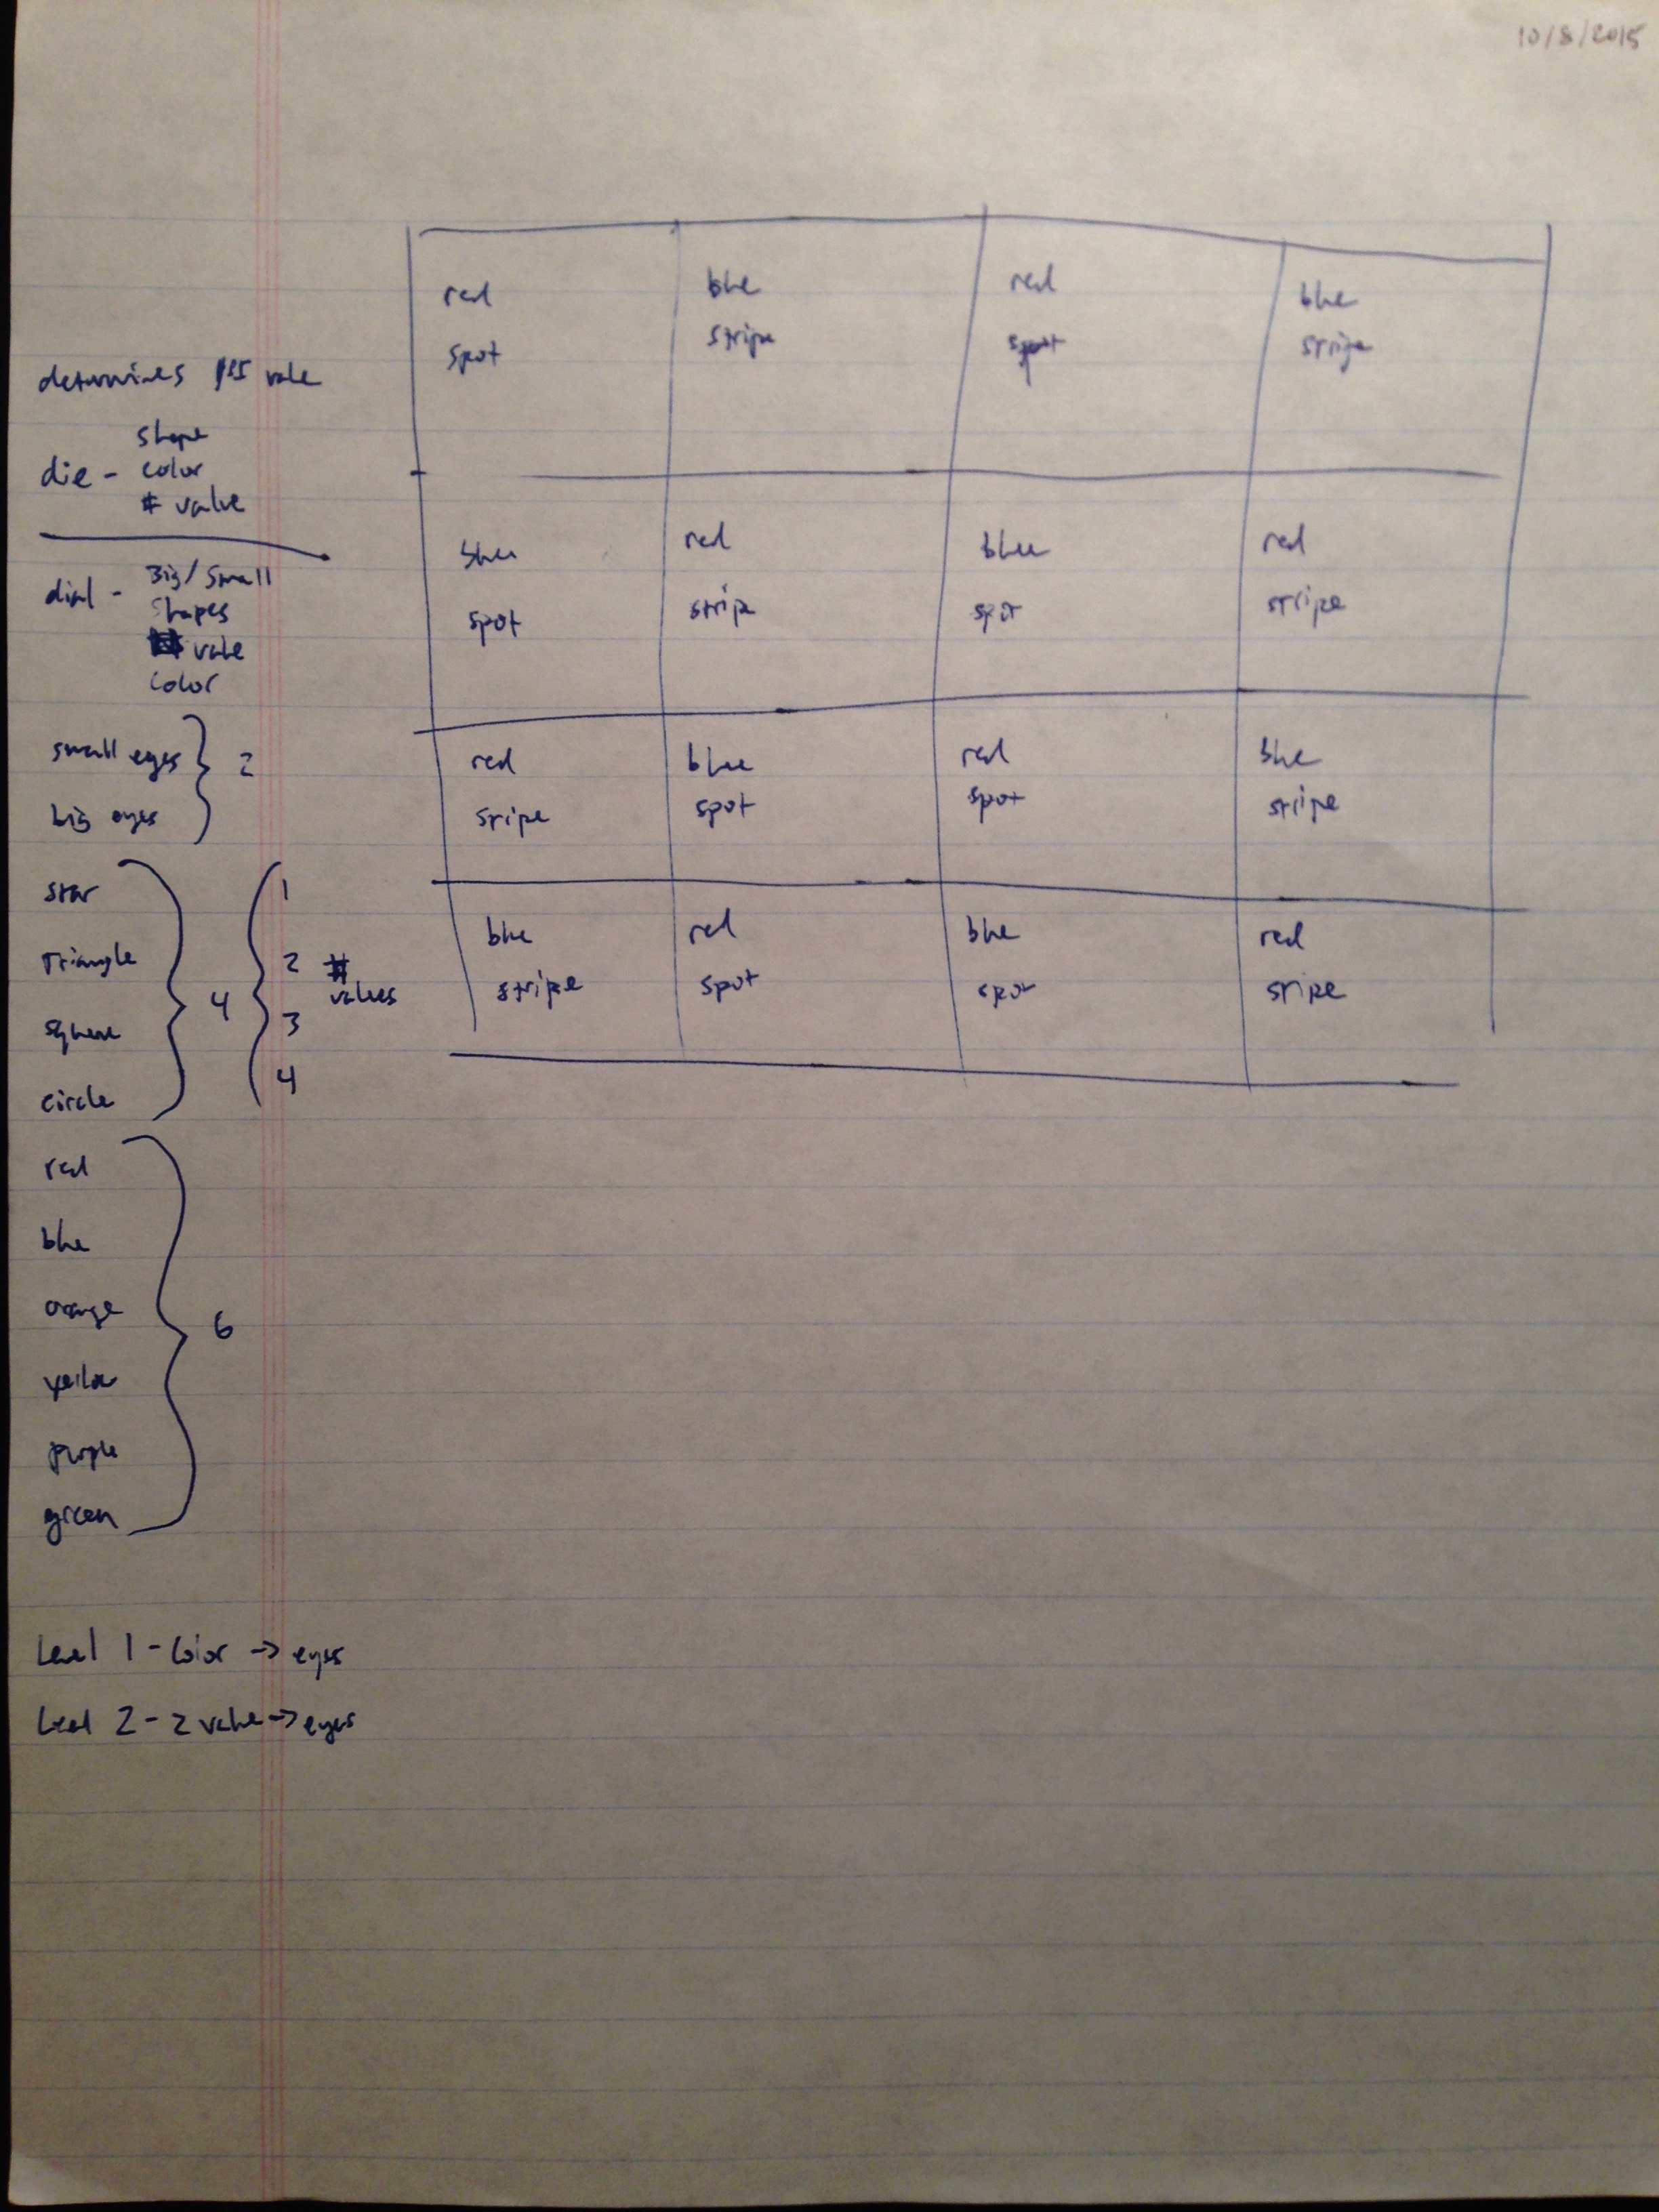 10/8/2015
red blue red blue
spot stripe spot stripe
determines value
shape
die - color
# value
blue red blue red
spot stripe spot stripe
dial - Big/Small
shapes
value
color
small eyes } 2
big eyes
red blue red blue
stripe spot spot stripe
star
triangle
square
circle
4
1
2
3
4
# values
blue red blue red
stripe spot spot stripe
red
blue
orange
yellow
purple
green
6
Level 1 - Color -> eyes
Level 2 - 2 value -> eyes